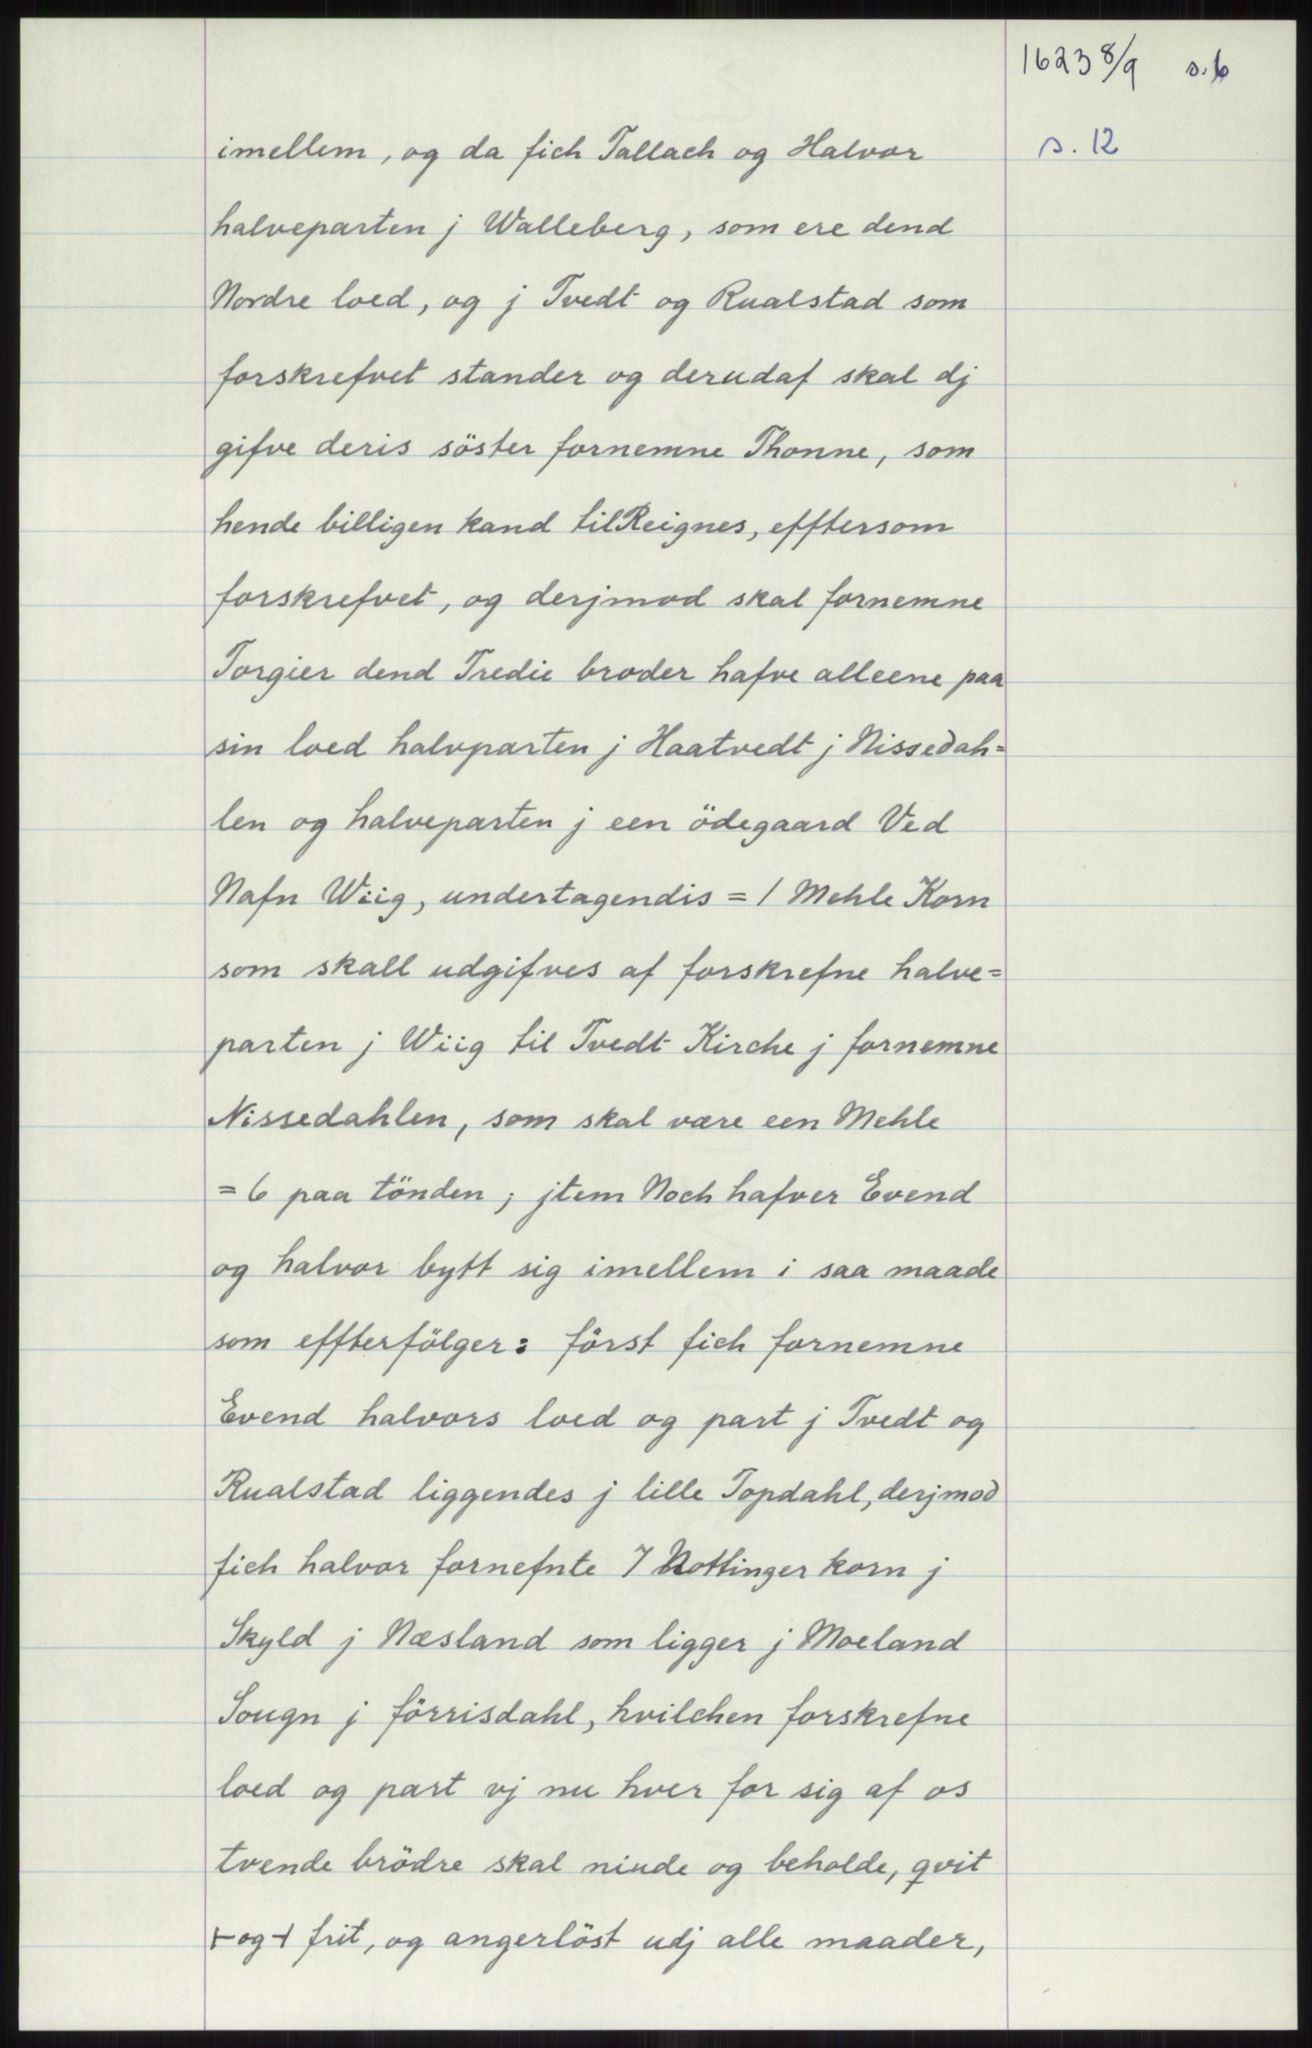 1623 8/9 s. 6
s. 12
imellem, og da fich Tallach og Halvor
halveparten j Walleberg, som ere dend
Nordre loed, og j Tvedt og Rualstad som
forskrefvet stander og derudaf skal dj
gifve deris söster fornemne Thonne, som
hende billigen kand tilReignes, efftersom
forskrefvet, og derjmod skal fornemne
Torgier dend Tredie broder hafve alleene paa
sin loed halvparten j Haatvedt j Nissedah=
len og halveparten j een ödegaard Ved
Nafn Wiig, undertagendis = 1 Mehle Korn
som skall udgifves af forskrefne halve=
parten j Wiig til Tvedt Kirche j fornemne
Nissedahlen, som skal være een Mehle
= 6 paa tönden; jtem Noch hafver Evend
og halvor bytt sig imellem i saa maade
som effterfölger: först fich fornemne
Evend halvors loed og part j Tvedt og
Rualstad liggendes j lille Topdahl, derjmod
fich halvor fornefnte 7 Nottinger korn j
Skyld j Næsland som ligger j Moeland
Sougn j förrisdahl, hvilchen forskrefne
loed og part vj nu hver for sig af os
tvende brödre skal niude og beholde, qvit
⊢og⊣ frit, og angerlöst udj alle maader,